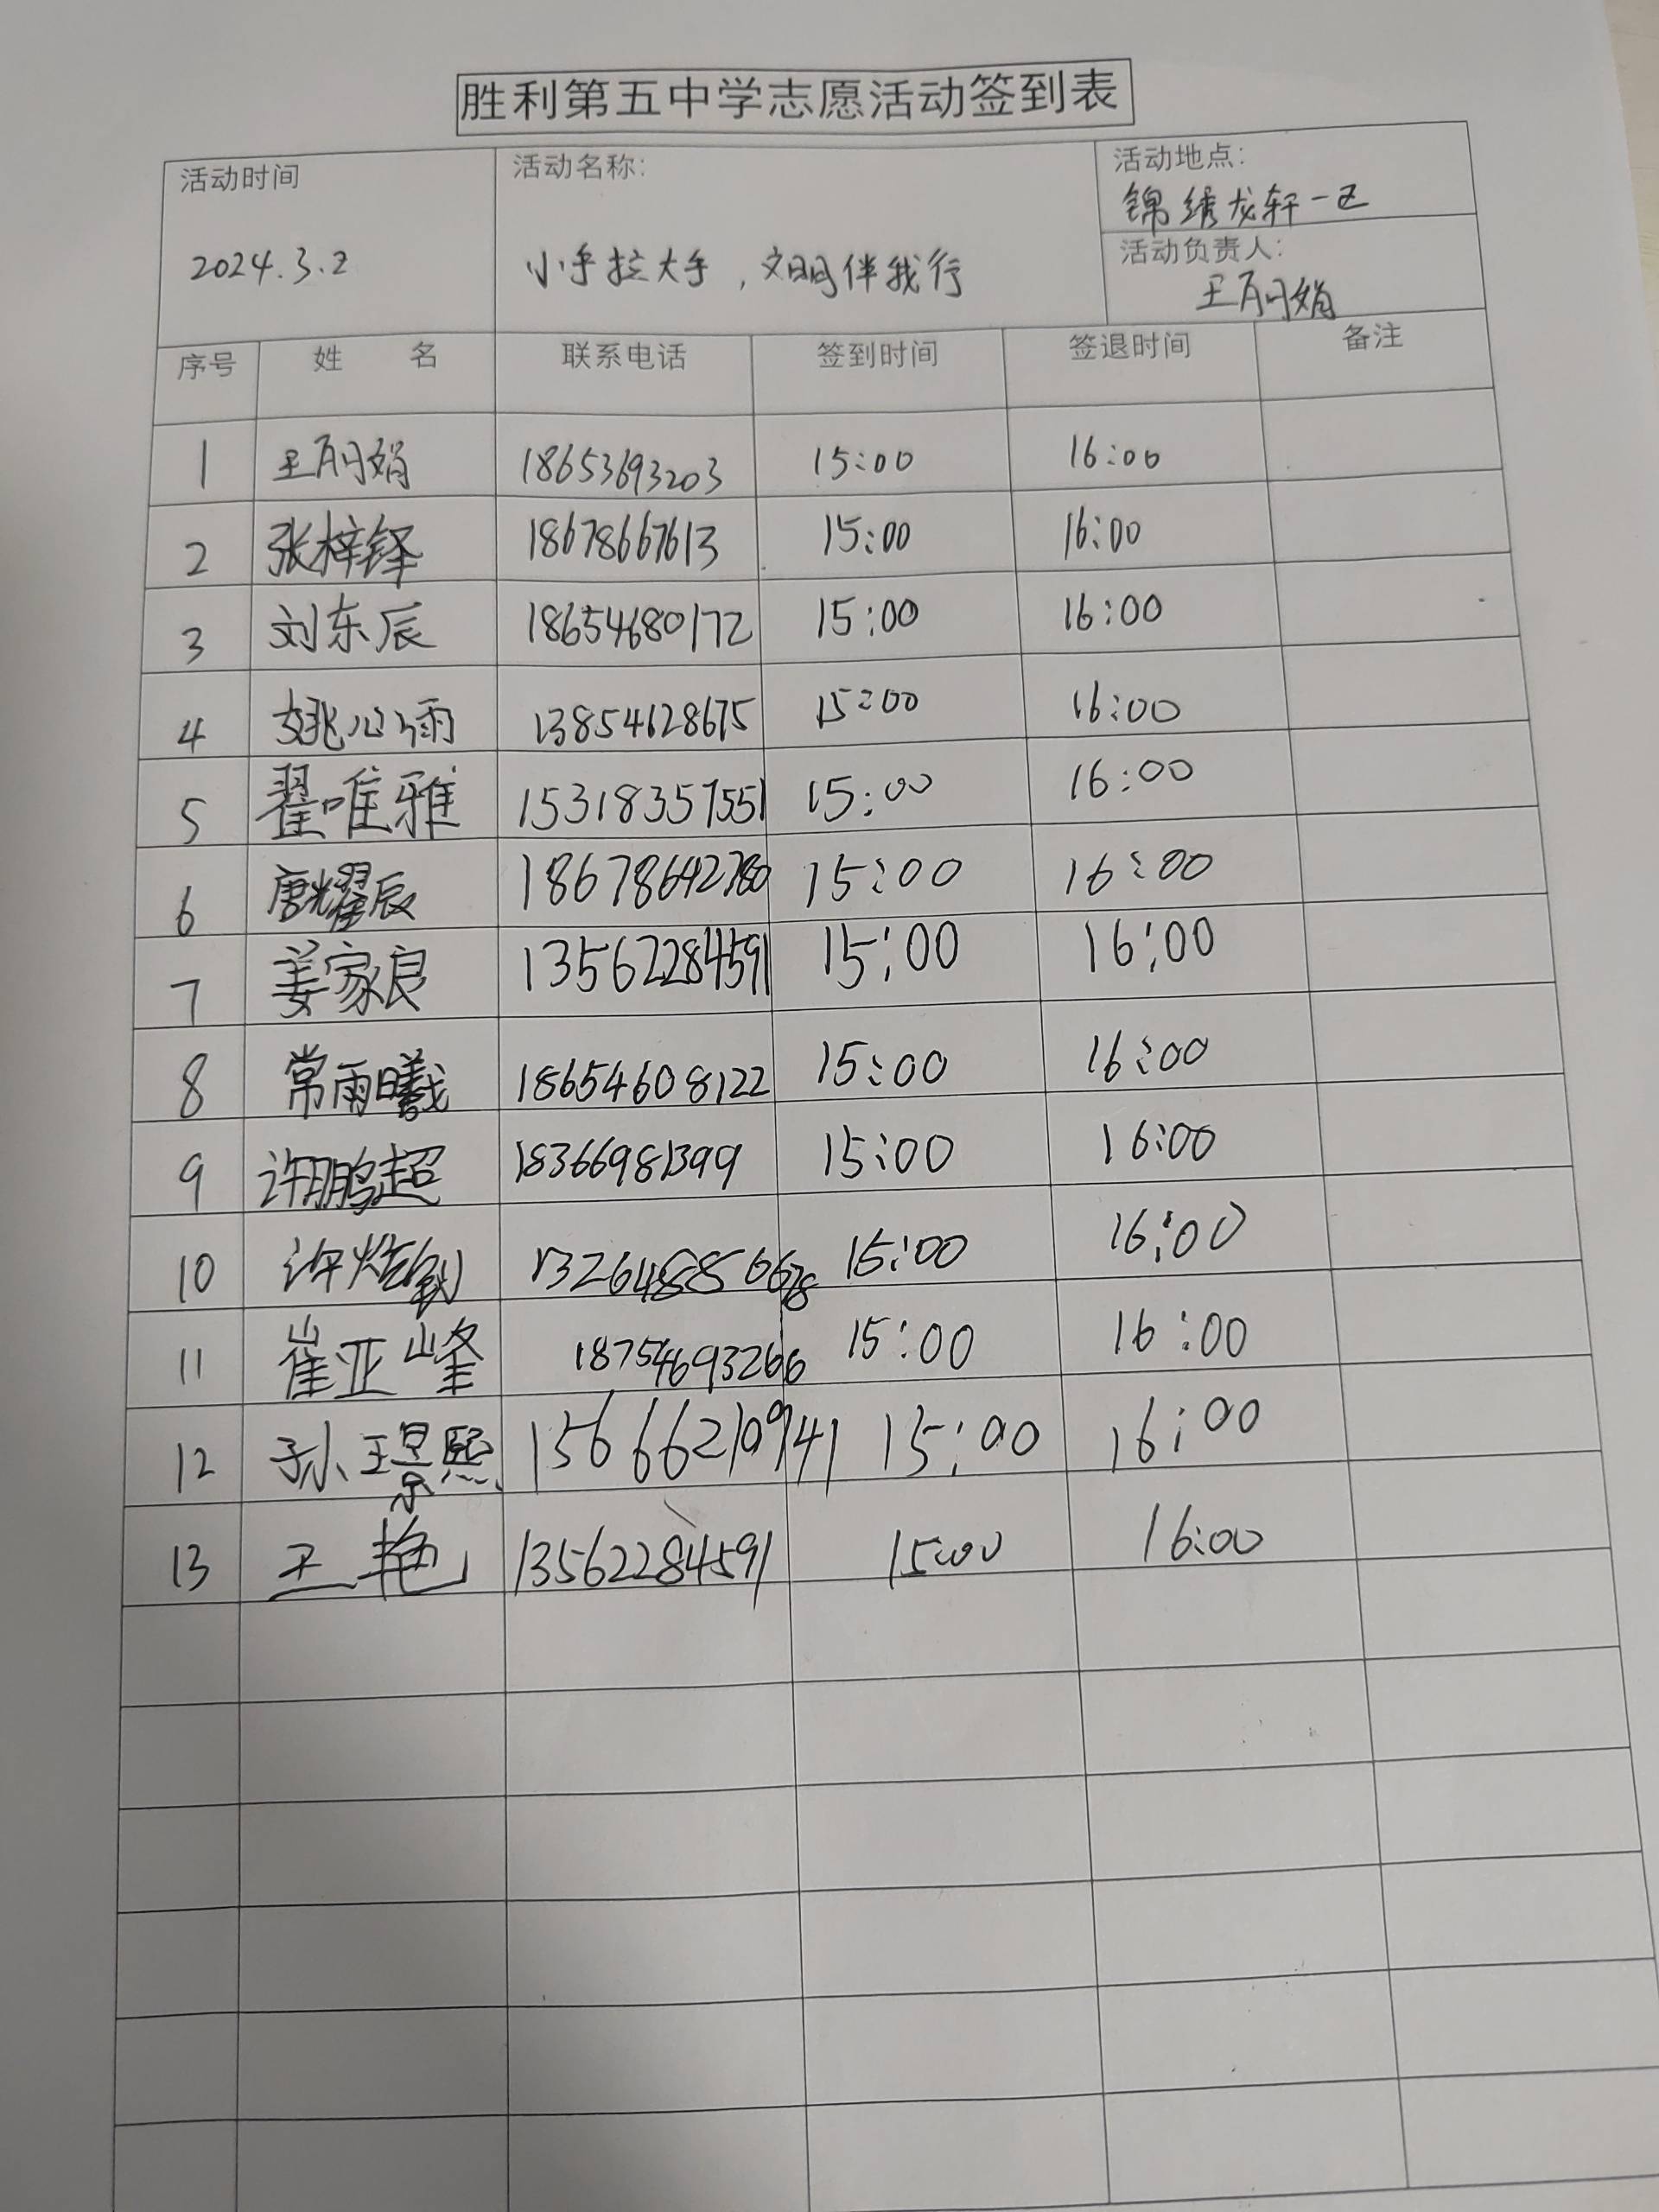 胜利第五中学志愿活动签到表
活动时间 活动名称: 活动地点:
锦绣龙轩一区
2024.3.2 小手拉大手,文明伴我行 活动负责人:
王丽娟
序号 姓 名 联系电话 签到时间 签退时间 备注
1 王丽娟 18653693203 15:00 16:00
2 张梓铎 18678667613 15:00 16:00
3 刘东辰 18654680172 15:00 16:00
4 姚心雨 13854628675 15:00 16:00
5 翟唯雅 15318357551 15:00 16:00
6 唐耀辰 18678642780 15:00 16:00
7 姜家良 13562284591 15:00 16:00
8 常雨曦 18654608122 15:00 16:00
9 许鹏超 18366981399 15:00 16:00
10 许 15:00 16:00
11 崔亚峰 18754693266 15:00 16:00
12 孙璟熙 15666210941 15:00 16:00
13 王艳 13562284591 15:00 16:00